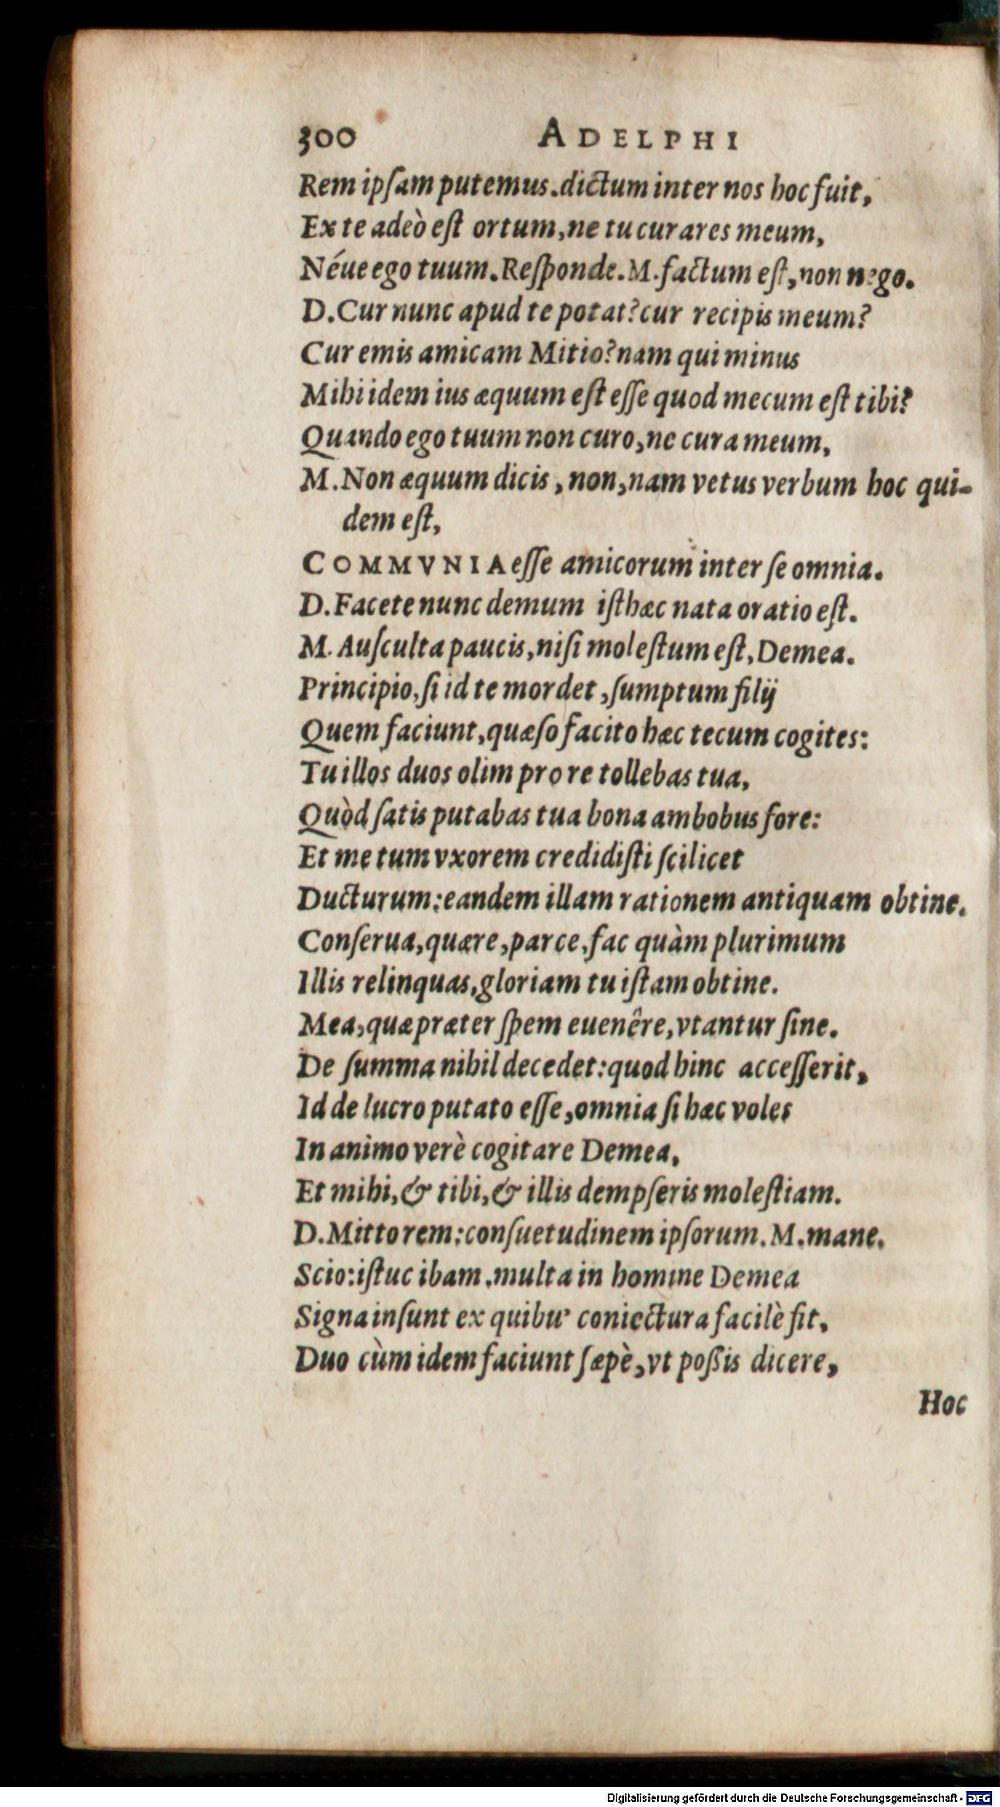 300 ADELPHI
Rem ipſam putemus. dictum inter nos hoc fuit,
Ex te adeò eſt ortum, ne tu curares meum,
Néue ego tuum. Reſponde. M. factum eſt, non nego.
D. Cur nunc apud te potat? cur recipis meum?
Cur emis amicam Mitio? nam qui minus
Mihi idem ius æquum eſt eſſe quod mecum eſt tibi?
Quando ego tuum non curo, ne cura meum,
M. Non æquum dicis, non, nam vetus verbum hoc qui-
dem eſt,
COMMVNIA eſſe amicorum inter ſe omnia.
D. Facete nunc demum iſthæc nata oratio eſt.
M. Auſculta paucis, niſi moleſtum eſt, Demea.
Principio, ſi id te mordet, ſumptum filij
Quem faciunt, quæſo facito hæc tecum cogites:
Tu illos duos olim pro re tollebas tua,
Quòd ſatis putabas tua bona ambobus fore:
Et me tum vxorem credidiſti ſcilicet
Ducturum: eandem illam rationem antiquam obtine.
Conſerua, quære, parce, fac quàm plurimum
Illis relinquas, gloriam tu iſtam obtine.
Mea, quæ præter ſpem euenêre, vtantur ſine.
De ſumma nihil decedet: quod hinc acceſſerit,
Id de lucro putato eſſe, omnia ſi hæc voles
In animo verè cogitare Demea,
Et mihi, & tibi, & illis dempſeris moleſtiam.
D. Mitto rem: conſuetudinem ipſorum. M. mane.
Scio: iſtuc ibam. multa in homine Demea
Signa inſunt ex quibu' coniectura facilè fit,
Duo cùm idem faciunt ſæpè, vt poßis dicere,
Hoc
Digitalisierung gefördert durch die Deutsche Forschungsgemeinschaft - DFG